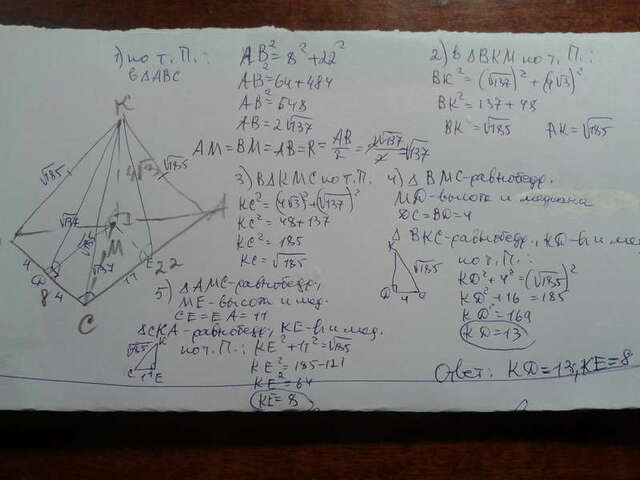 1) по т. П.:
в ΔABC
AB² = 8² + 22²
AB² = 64 + 484
AB² = 548
AB = 2√137
AM = BM = AB = R = AB/2 = 2√137/2 = √137
2) в ΔBKM по т. П.:
BK² = (√137)² + (4√3)²
BK² = 137 + 48
BK = √185 AK = √185
3) В ΔKMC по т. П.
KC² = (4√3)² + (√137)²
KC² = 48 + 137
KC² = 185
KC = √185
4) Δ BMC-равнобедр.
MD-высота и медиана
DC = BD = 4
Δ BKC-равнобедр., KD-h и мед.
по т. П.:
KD² + 4² = (√185)²
KD² + 16 = 185
KD² = 169
KD = 13
K
√185
D 4 C
5) ΔAMC-равнобедр.,
ME-высота и мед.
CE = EA = 11
ΔCKA-равнобедр., KE-h и мед.
по т. П.: KE² + 11² = √185
KE² = 185 - 121
KE² = 64
KE = 8
√185 K
C 11 E
K
√185
√185
M
√137
4
D
8
4
11
E
22
C
Ответ: KD = 13, KE = 8